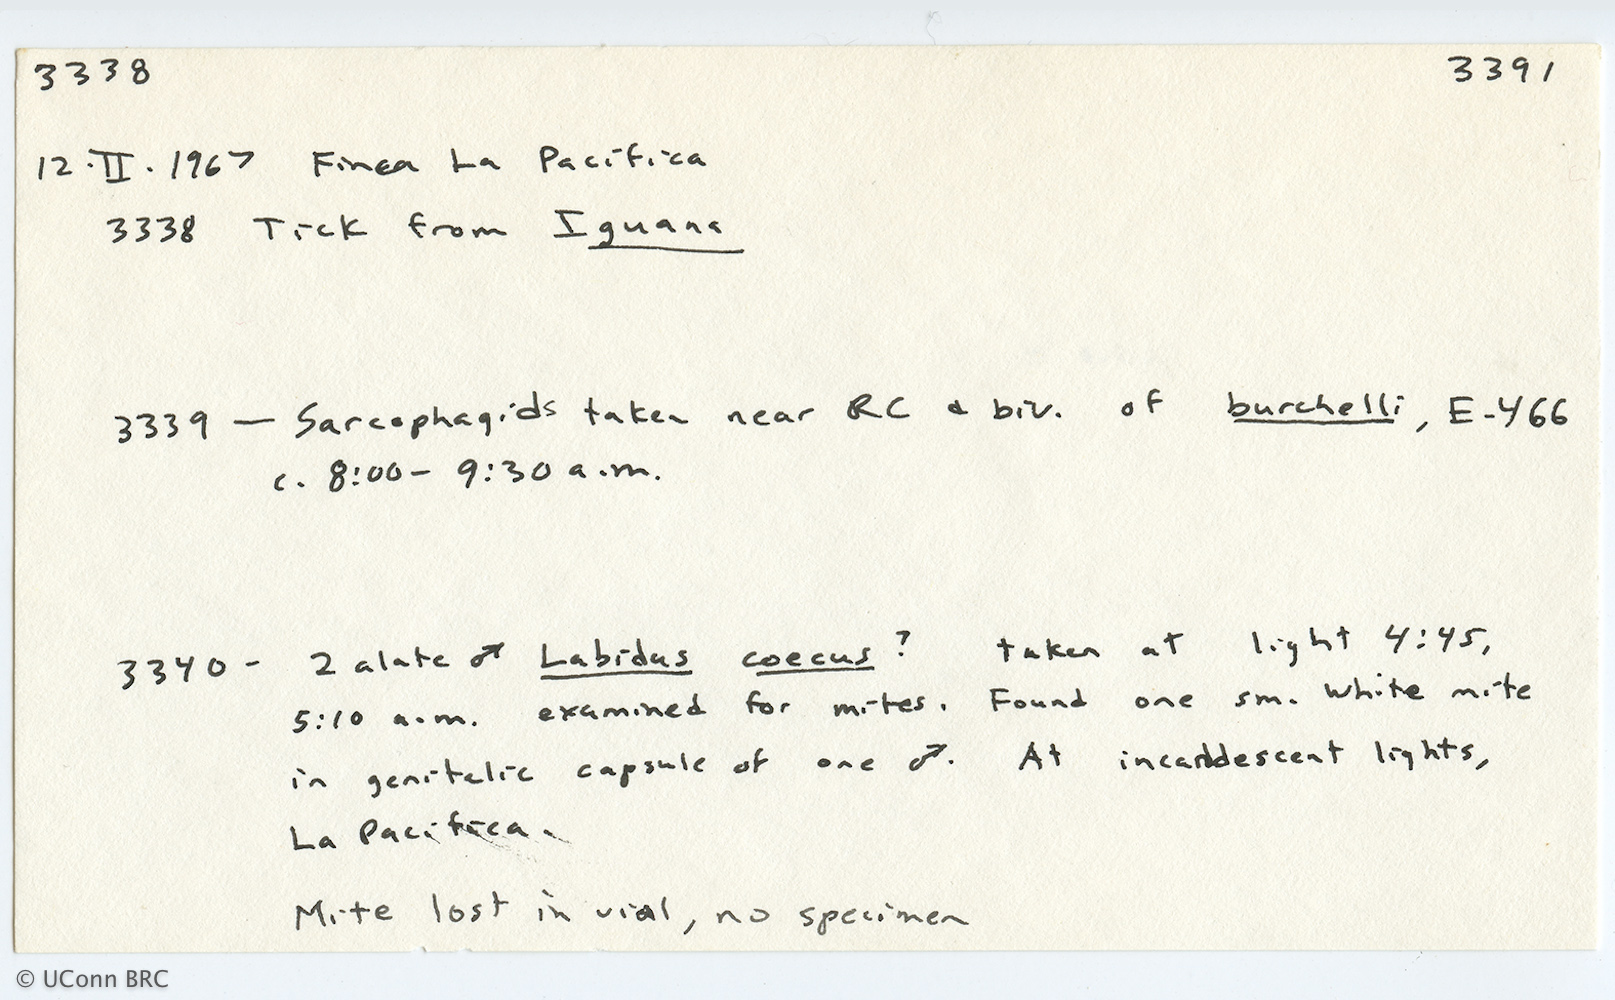 3338 3391
12.II.1967 Finca La Pacifica
3338 Tick from Iguana
3339 — Sarcophagids taken near RC & biv. of burchelli, E-466
c. 8:00 - 9:30 a.m.
3340 - 2 alate ♂ Labidus coecus? taken at light 4:45,
5:10 a.m. examined for mites. Found one sm. white mite
in genitalic capsule of one ♂. At incandescent lights,
La Pacifica.
Mite lost in vial, no specimen
© UConn BRC